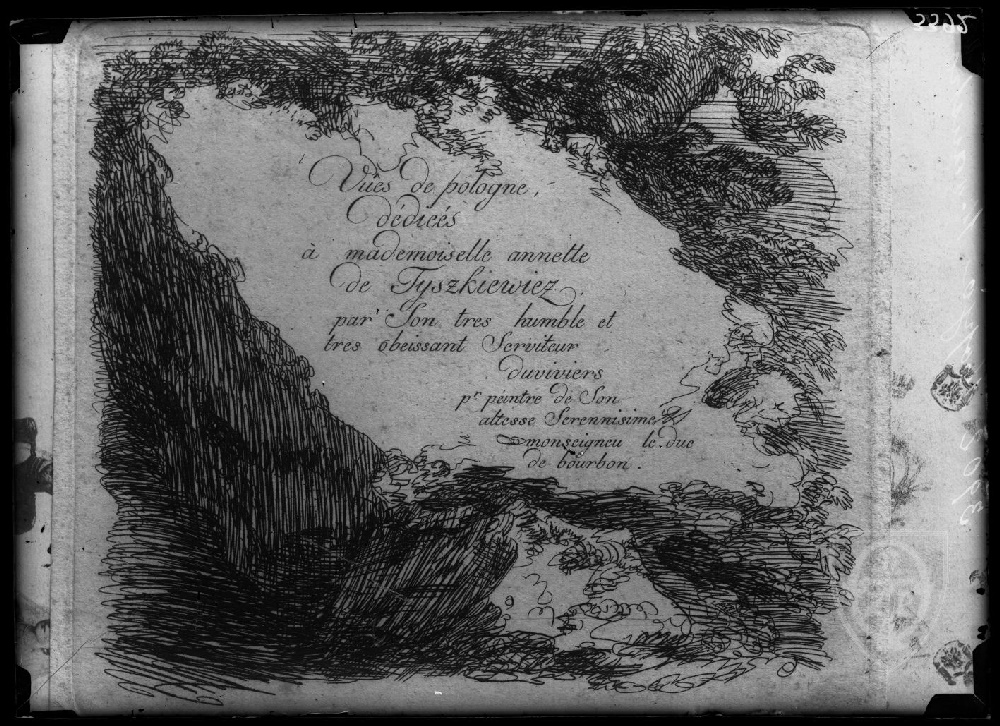 Vües de pologne,
dédieés
à mademoiselle annette
de Tyszkiewiez
par Son tres humble et
tres obeissant Serviteur
duviviers
pr peintre de Son
altesse Serennisime
monseigneu le duc
de bourbon.